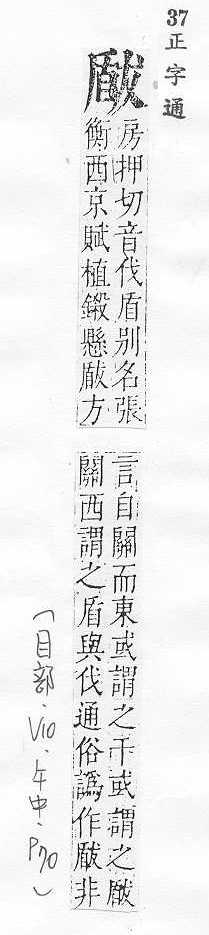 37 正字通
瞂
房押切音伐盾別名張
衡西京賦植鎩懸瞂方
言自關而東或謂之干或謂之瞂
關西謂之盾與伐通俗譌作瞂非
(目部.V10.午中.P70)